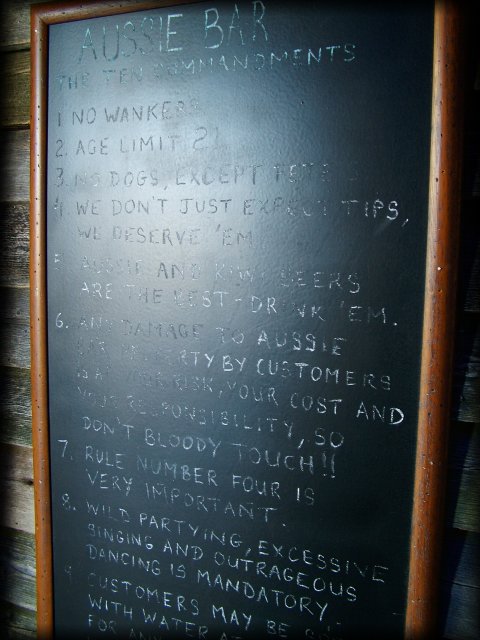 AUSSIE BAR
THE TEN COMMANDMENTS
1 NO WANKERS
2. AGE LIMIT 21
3. NO DOGS, EXCEPT PETE
4. WE DON'T JUST EXPECT TIPS,
WE DESERVE 'EM
5. AUSSIE AND KIWI BEERS
ARE THE BEST - DRINK 'EM.
6. ANY DAMAGE TO AUSSIE
BAR PROPERTY BY CUSTOMERS
IS AT YOUR RISK, YOUR COST AND
YOUR RESPONSIBILITY, SO
DON'T BLOODY TOUCH!!
7. RULE NUMBER FOUR IS
VERY IMPORTANT.
8. WILD PARTYING, EXCESSIVE
SINGING AND OUTRAGEOUS
DANCING IS MANDATORY
9 CUSTOMERS MAY BE
WITH WATER
FOR